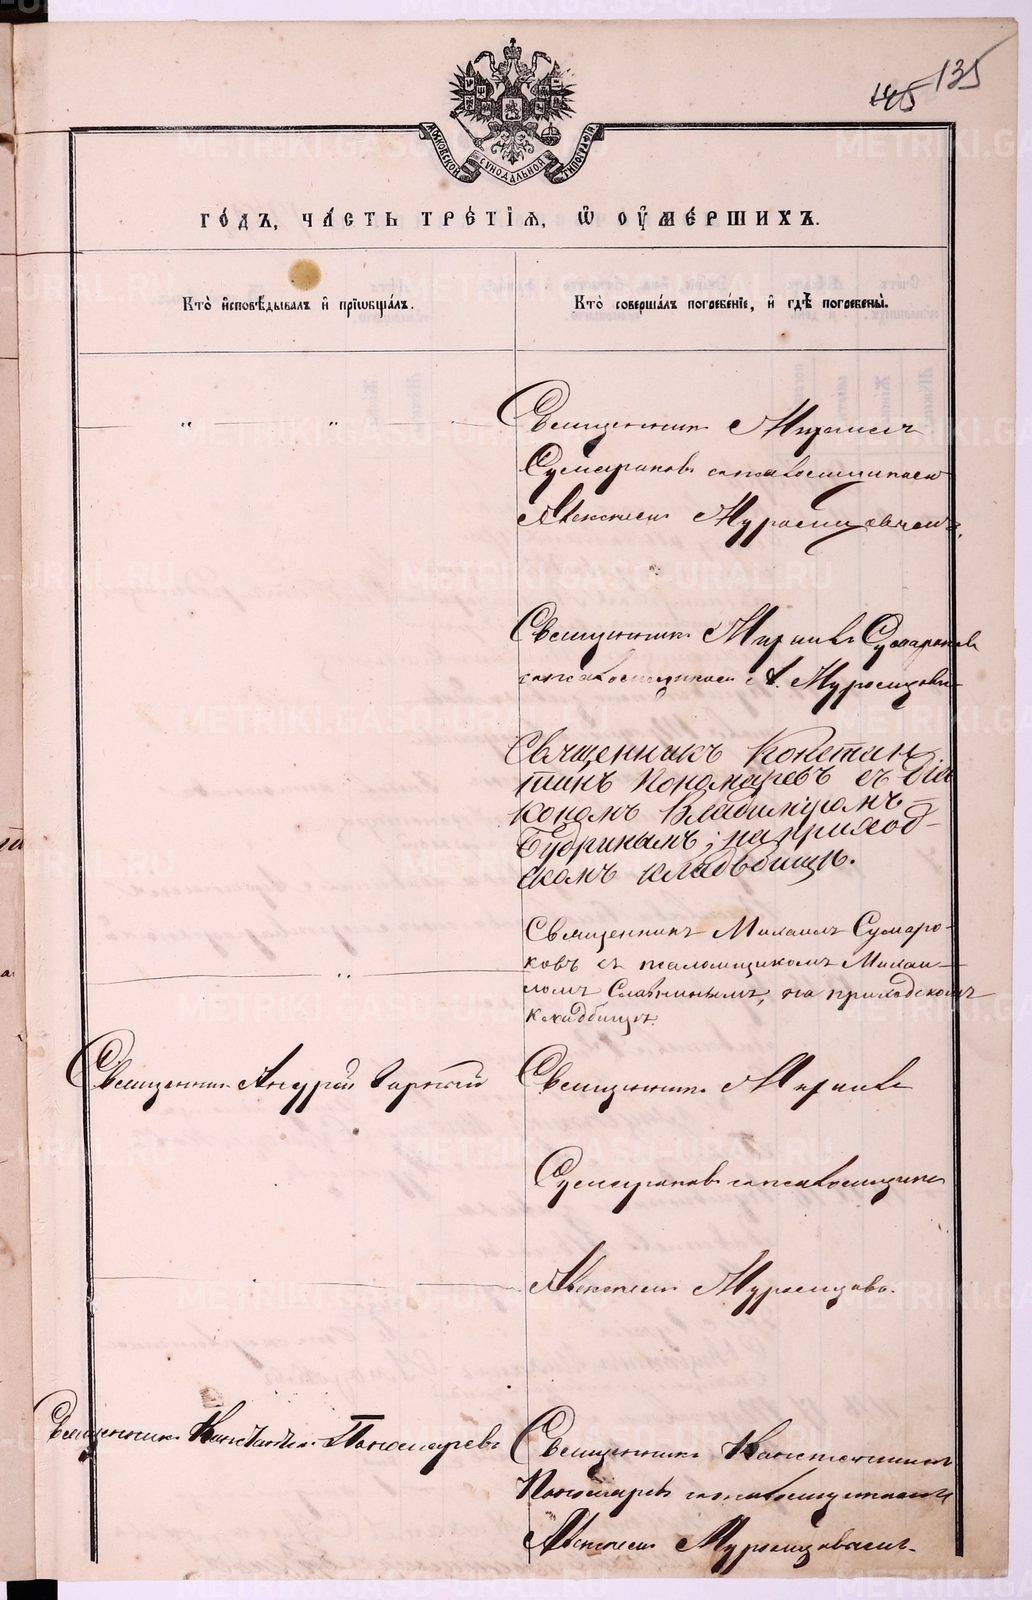 135
145
МОСКОВСКОЙ СѴНОДАЛЬНОЙ ТИПОГРАФІИ
ГО́ДЪ, ЧА́СТЬ ТРЕ́ТІѦ, Ѽ ОУ҆МЕ́РШИХЪ.
Кто̀ и҆сповѣ́дывалъ и҆ прїѡбща́лъ.
Кто̀ соверша́лъ погребе́нїе, и҆ гдѣ̀ погребены̀.
" "
Священникъ Михаилъ
Сумароковъ съ псаломщикомъ
Алексеемъ Муромцовымъ.
Священникъ Михаилъ Сумароковъ
съ псаломщикомъ А. Муромцовым
Священникъ Констан
тинъ Пономаревъ съ Діа
кономъ Владиміромъ
Будринымъ; на приход-
скомъ кладьбищѣ.
Священникъ Михаилъ Сумаро-
ковъ съ псаломщикомъ Михаи-
ломъ Славнинымъ, на приходскомъ
кладбищѣ.
"
Священникъ Андрей
Священникъ Михаилъ
Сумароковъ съ псаломщикомъ
Алексеемъ Муромцовы
Священникъ Константинъ Пономаревъ
Священникъ Константинъ
Пономаревъ съ псаломщикомъ
Алексеемъ Муромцовымъ.
METRIKI.GASO-URAL.RU